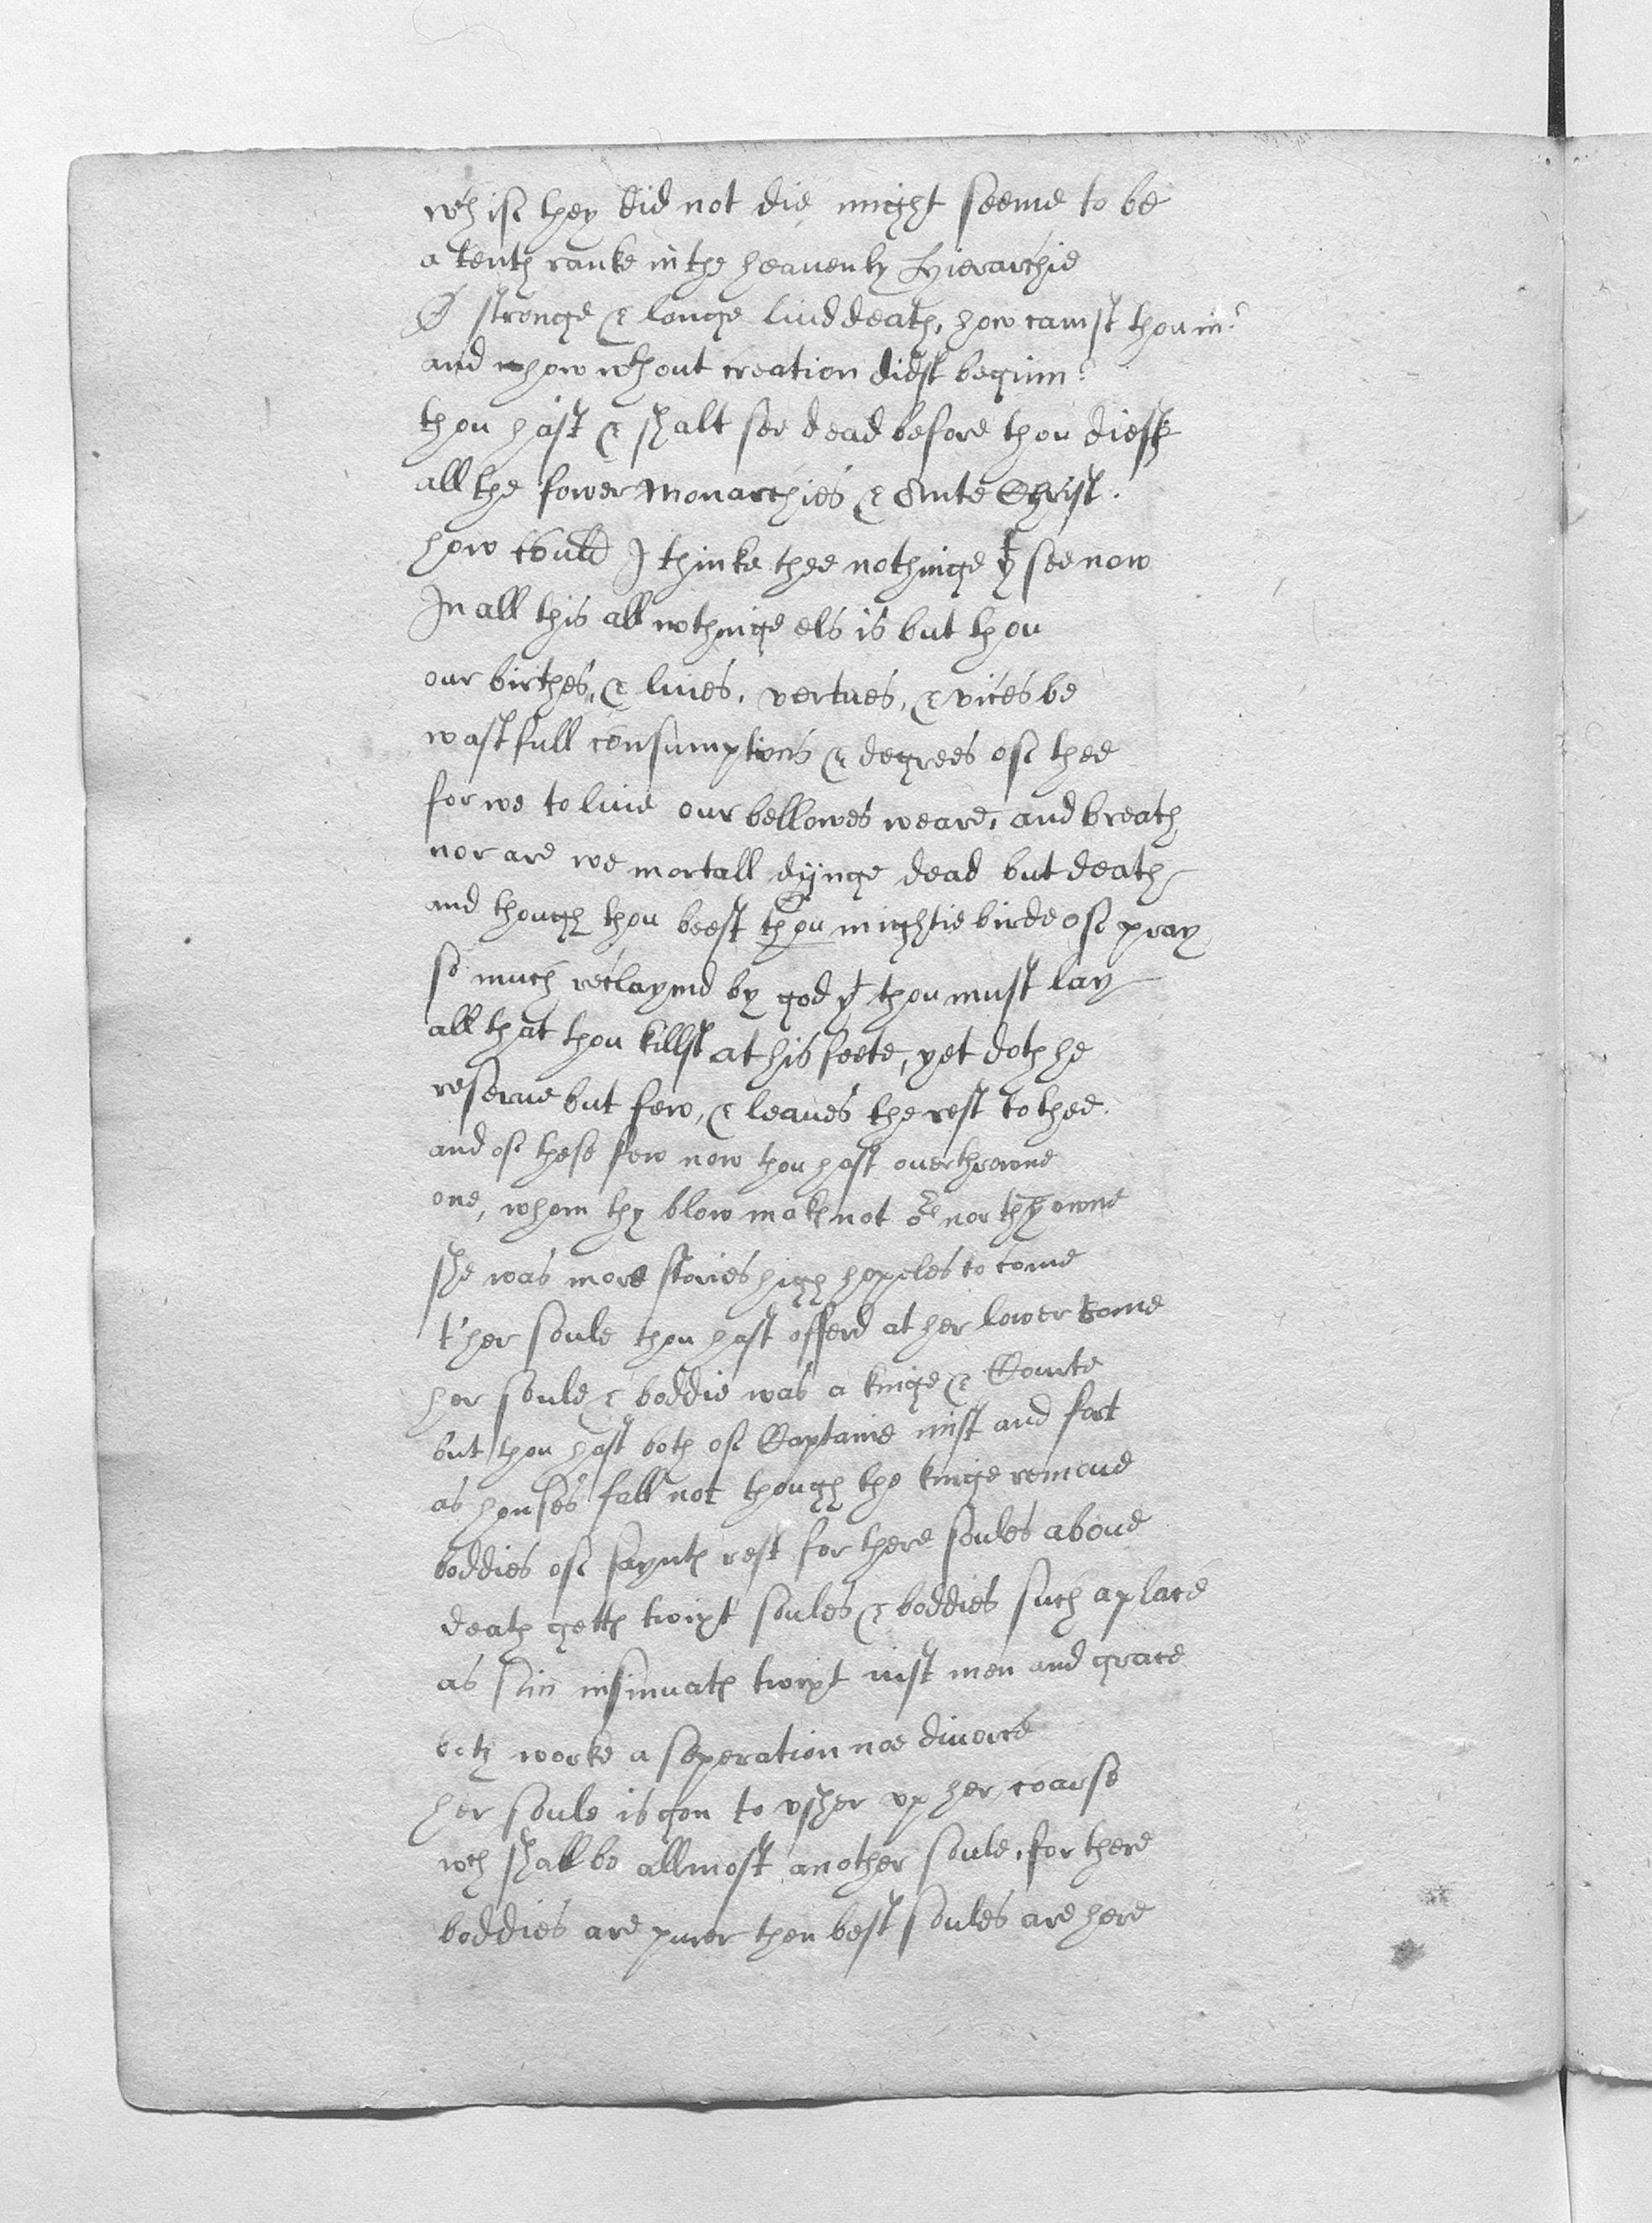 wch if they did not die might seeme to be
a tenth ranke in the heauenly Hierarchie
O stronge & longe liud death, how camst thou in?
and how wthout creation didst beginn?
thou hast & shalt see dead before thou diest
all the fower Monarchies & Ante Christ.
how could I thinke thee nothinge yt see now
In all this all nothinge els is but thou
our birthes, & liues, vertues, & vices be
wastfull consumptions & degrees of thee
for we to liue our bellowes weare, and breath
nor are we mortall dyinge dead but death
and though thou beest thou mightie birde of pray
so much reclaymd by god yt thou must lay
all that thou killst at his feete, yet doth he
reserue but few, & leaues the rest to thee.
and of these few now thou hast ouerthrowne
one, whom thy blow makes not ors nor thy owne
she was more stories high hopeles to come
t'her soule thou hast offerd at her lower rome
her soule & boddie was a kinge & Courte
but thou hast both of Captaine mist and fort
as houses fall not though the kinge remoue
boddies of saynts rest for there soules aboue
death getts twixt soules & boddies such a place
as sin insinuats twixt iust men and grace
both worke a seperation noe diuorce
her soule is gon to vsher vp her coarse
wch shall be allmost another soule, for there
boddies are purer then best soules are here